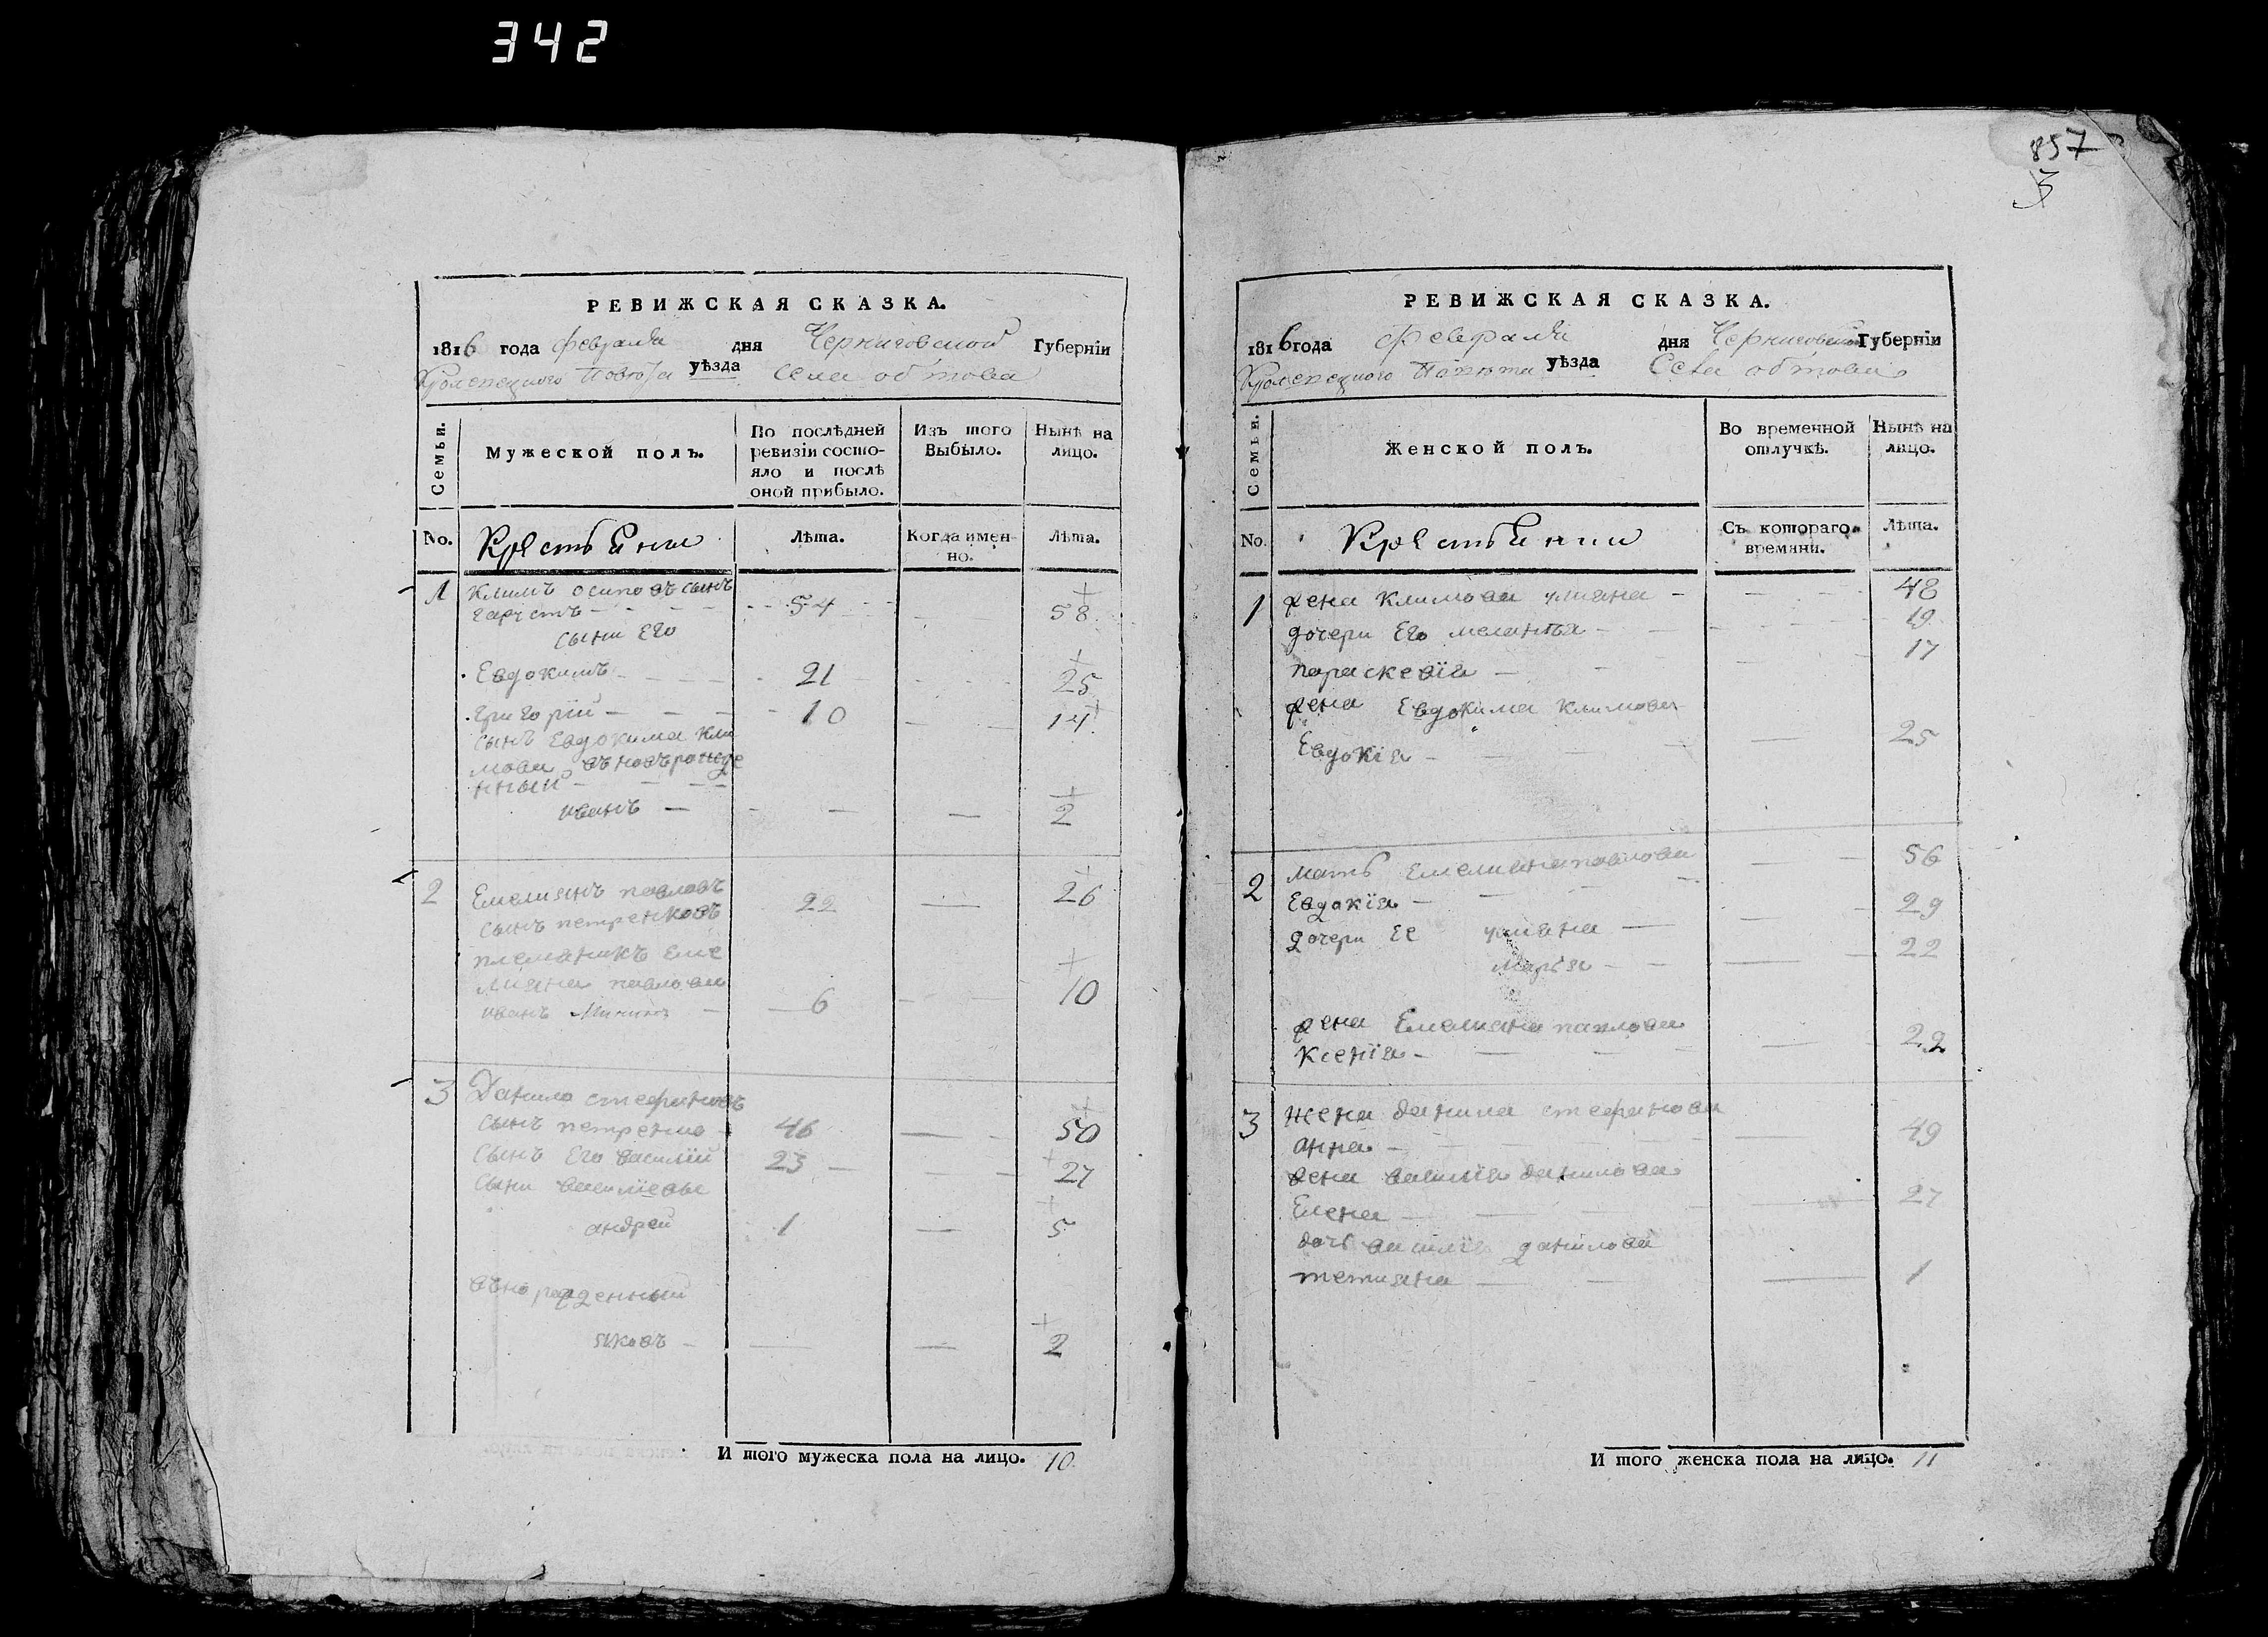 342
857
3
РЕВИЖСКАЯ СКАЗКА.
1816 года февраля дня Черниговской Губерніи
Кролевецкого Повѣта уѣзда Села обтова
Семьи.
Мужеской полъ.
По послѣдней ревизіи состояло и послѣ оной прибыло.
Изъ того Выбыло.
Нынѣ на лицо.
No. Крестьяни Лѣта. Когда именно. Лѣта.
1 Климъ осиповъ сынъ
54 58
сыни Его
Евдокимъ 21 25
григорій 10 14
сынъ Евдокима Кли
мова
нный
иванъ 2
2 Емелиянъ павловъ 22 26
сынъ петренковъ
племаникъ Еме
лияна павлова
иванъ 6 10
3 Данило стефановъ
сынъ петренко 46 50
сынъ Его василій 23 27
сыни василіевы
андрей 1 5
яковъ 2
И того мужеска пола на лицо. 10
РЕВИЖСКАЯ СКАЗКА.
1816 года февраля дня Черниговской Губерніи
Кролевецкого Повѣта уѣзда Села обтова
Семьи.
Женской полъ.
Во временной отлучкѣ.
Нынѣ на лицо.
No. Крестьянки Съ котораго времяни. Лѣта.
1 жена Климова улияна 48
дочери Его меланѣя 19
параскевія 17
жена Евдокима климова
Евдокія 25
2 мать Емелияна павлова 56
Евдокія
дочери Ее улияна 29
марѣя 22
жена Емелияна павлова
Ксенія 22
3 жена данила стефанова
анна 49
жена василія данилова
Елена 27
дочь василія данилова
тетияна 1
И того женска пола на лицо. 11